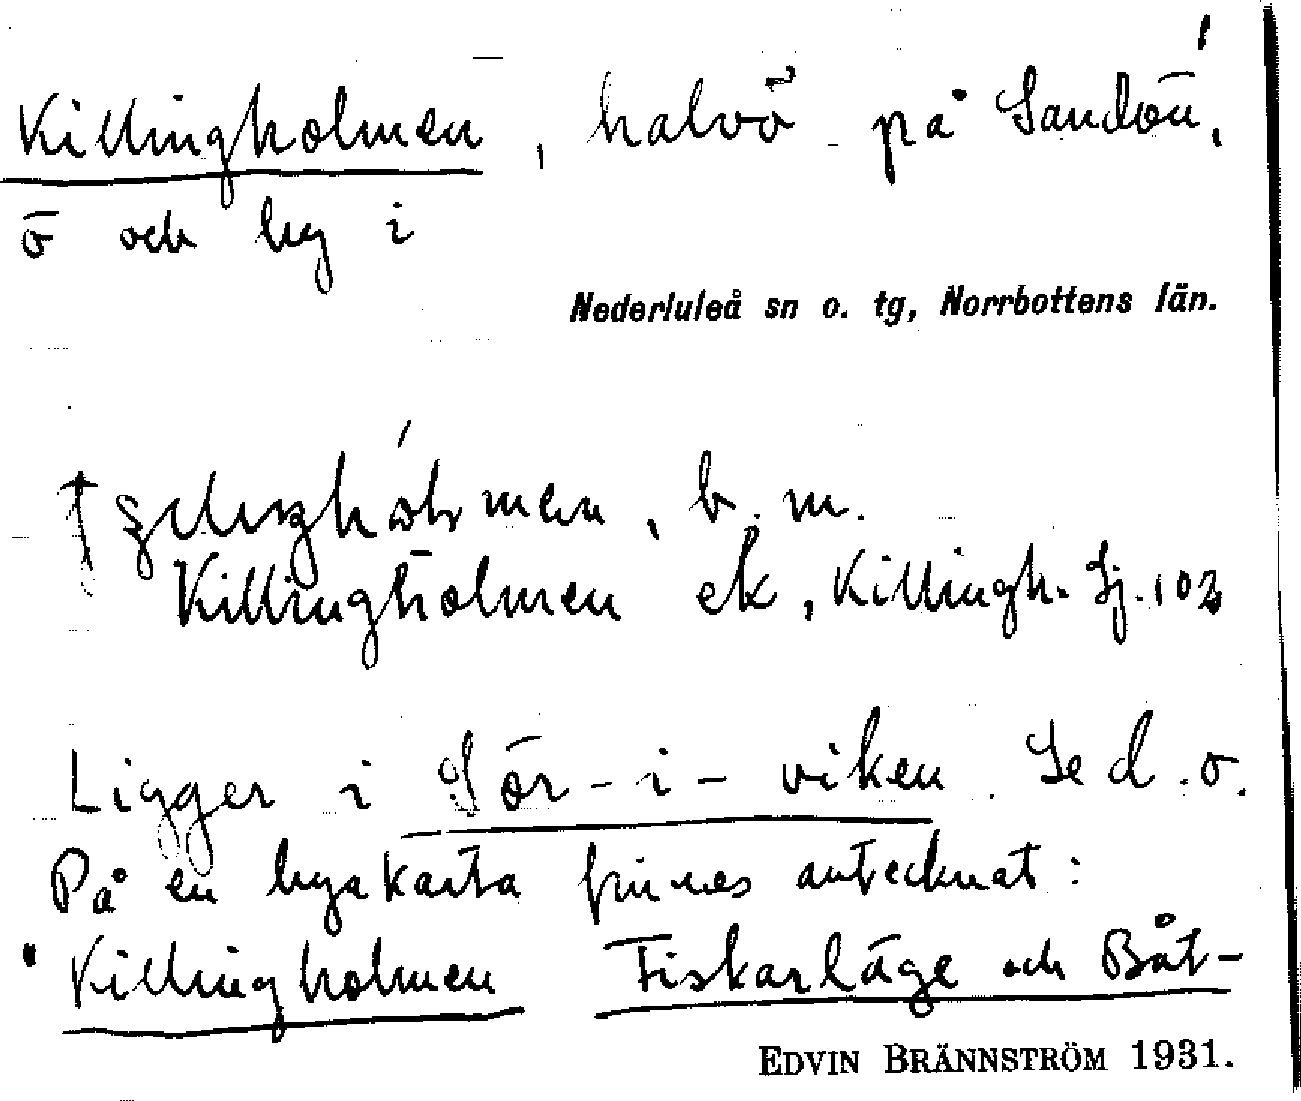 Killingholmen, halvö på Sandön,
ö och by i
Nederluleå sn o. tg, Norrbottens län.
b. m.
Killingholmen ek, Killingh. Sj. 102
Ligger i Sör-i-viken. Se d. o.
På en byakarta finnes antecknat:
Killingholmen Fiskarläge och Båt-
EDVIN BRÄNNSTRÖM 1931.